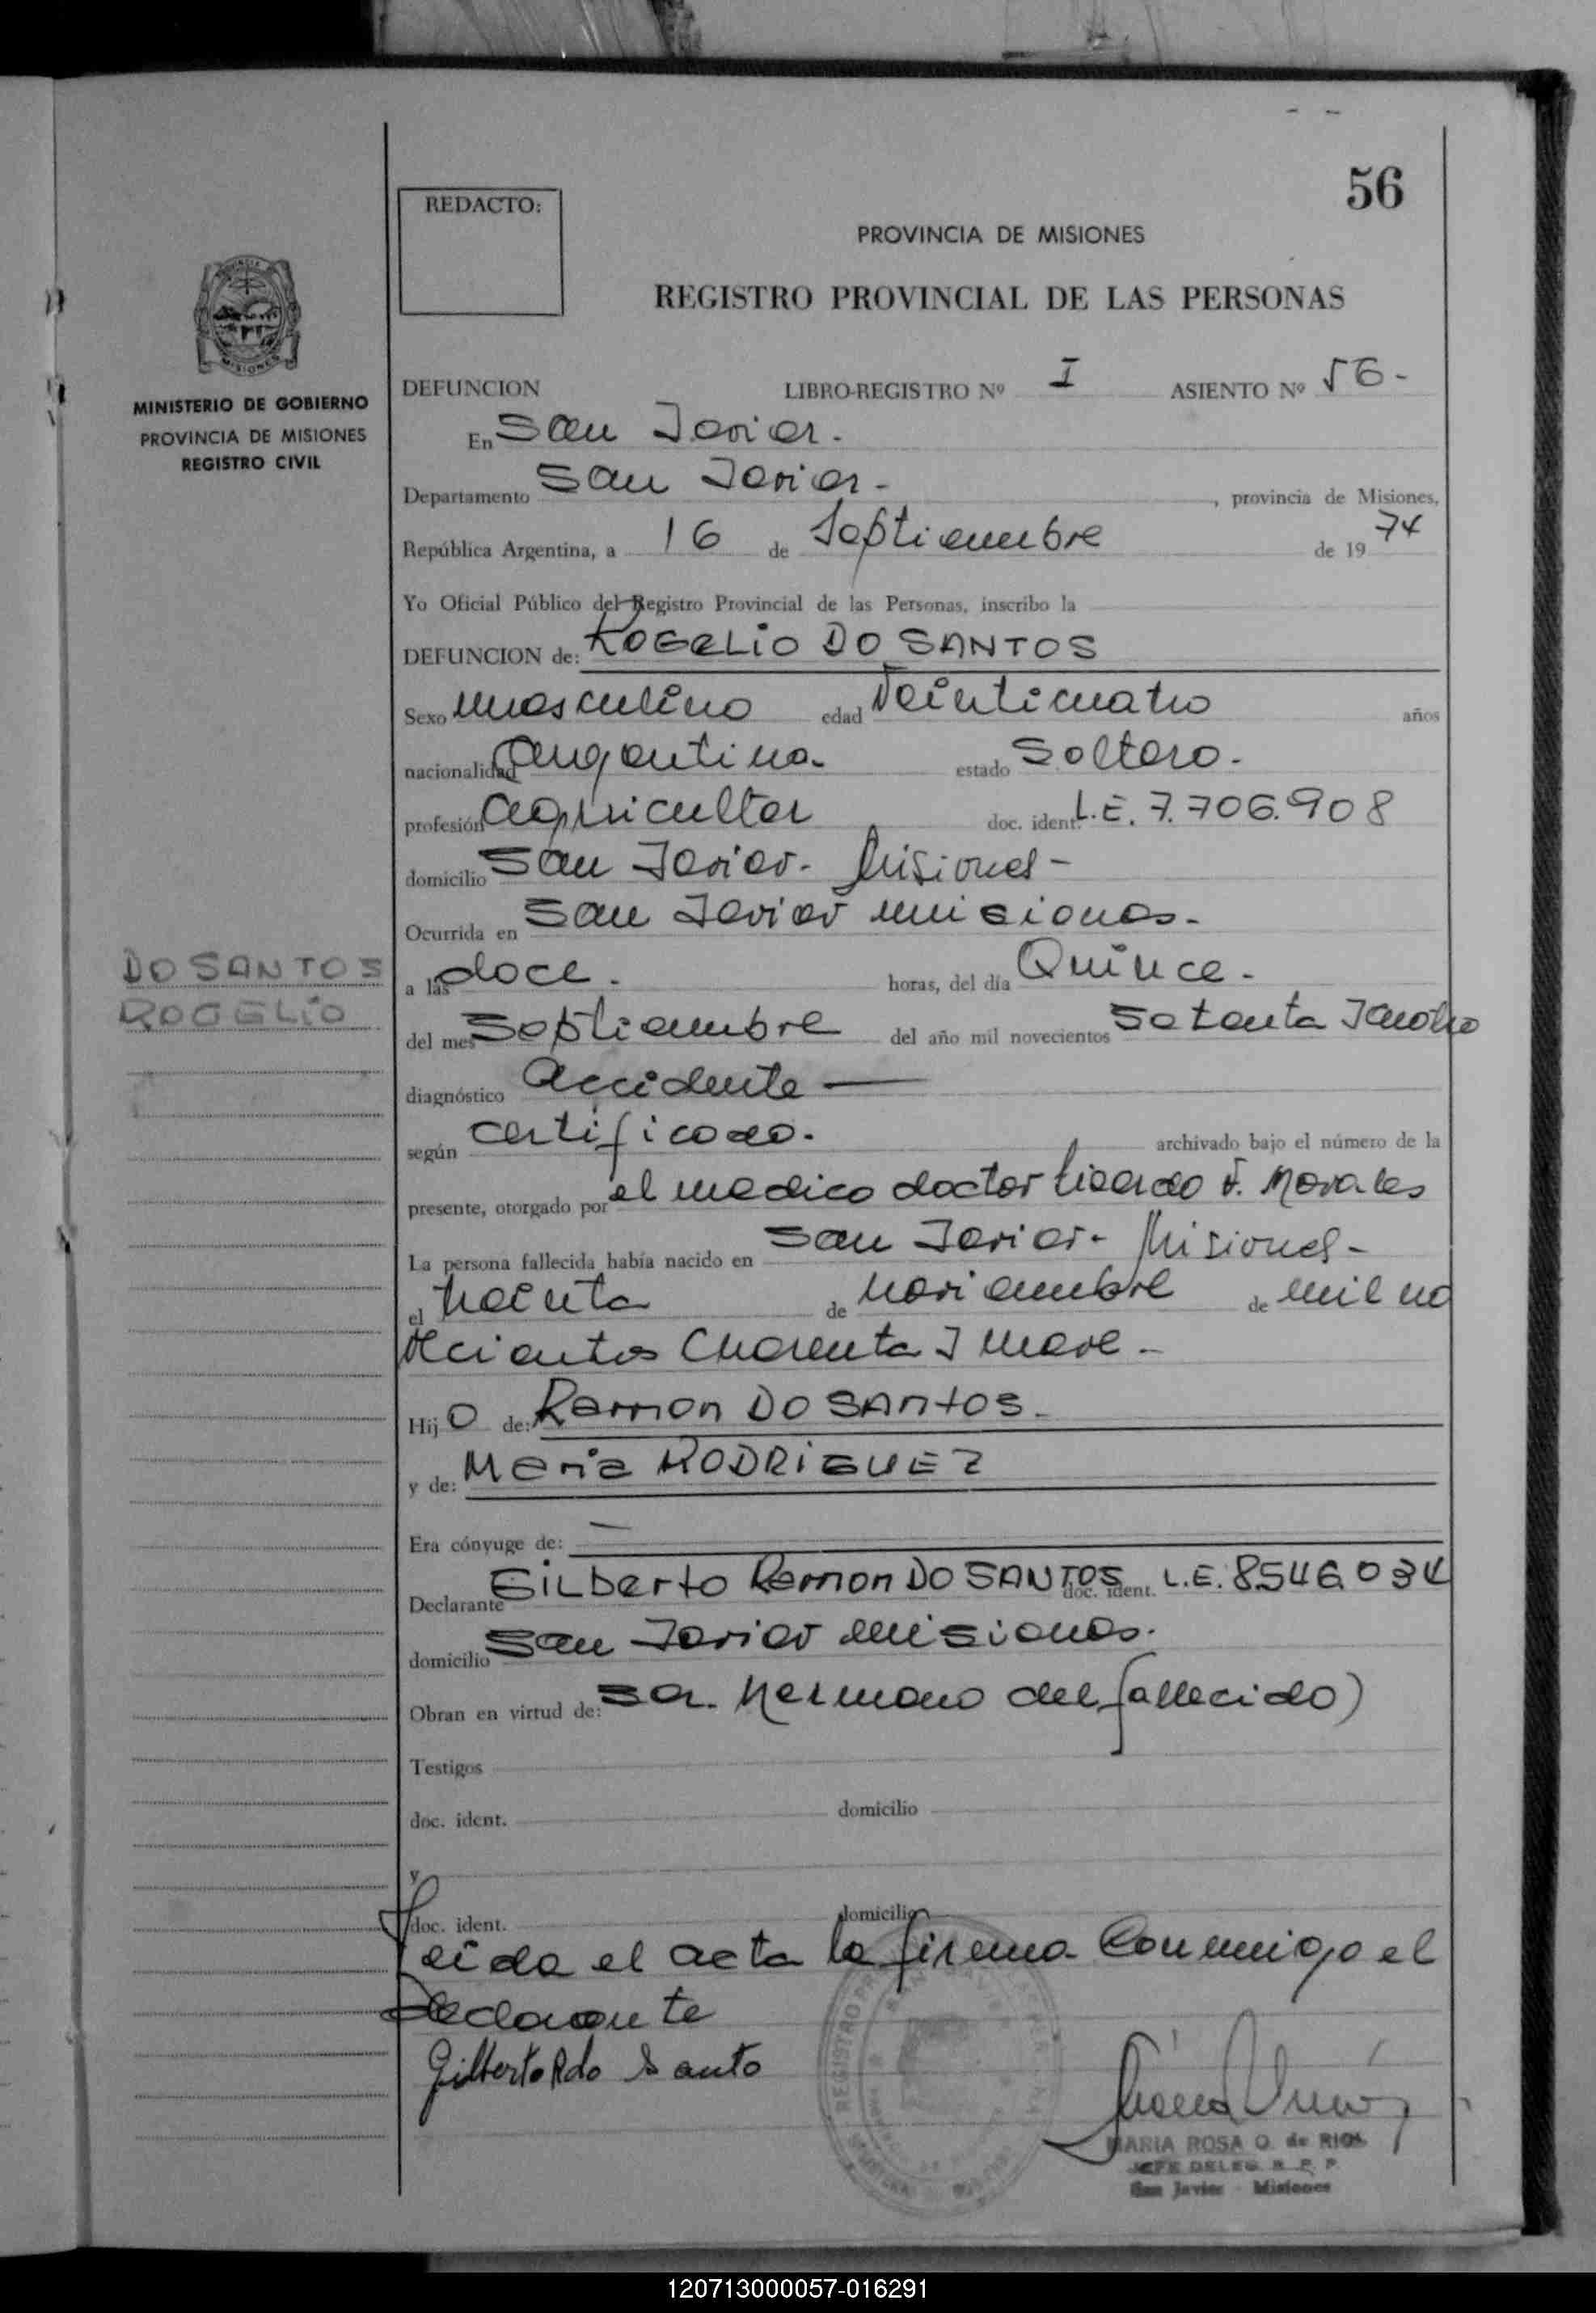 56
REDACTO:
PROVINCIA DE MISIONES
REGISTRO PROVINCIAL DE LAS PERSONAS
MINISTERIO DE GOBIERNO
PROVINCIA DE MISIONES
REGISTRO CIVIL
DEFUNCION LIBRO-REGISTRO Nº I ASIENTO Nº 56-
En San Javier.
Departamento San Javier- , provincia de Misiones,
República Argentina, a 16 de Septiembre de 1974
Yo Oficial Público del Registro Provincial de las Personas, inscribo la
DEFUNCION de: ROGELIO DO SANTOS
Sexo masculino edad Veinticuatro años
nacionalidad argentina. estado Soltero.
profesión agricultor doc. ident. L.E. 7.706.908
domicilio San Javier- Misiones-
Ocurrida en San Javier misiones-
DO SANTOS
ROGELIO
a las doce. horas, del día Quince.
del mes Septiembre del año mil novecientos Setenta Icuatro
diagnóstico accidente —
según certificado. archivado bajo el número de la
presente, otorgado por el medico doctor F. Morales
La persona fallecida había nacido en San Javier- Misiones-
el treinta de noviembre de mil no
vecientos Cuarenta I nueve-
Hijo de: Ramon DO SANTOS-
y de: Maria RODRIGUEZ
Era cónyuge de: —
Declarante Gilberto Ramon DO SANTOS doc. ident. L.E. 8546.034
domicilio San Javier misiones.
Obran en virtud de: Ser hermano del fallecido)
Testigos
doc. ident. domicilio
y
doc. ident. domicilio
Leida el acta la firma Conmigo el
Declarante
Gilberto R do Santo
MARIA ROSA O. de RIOS
JEFE DELEG. R. P. P.
San Javier - Misiones
120713000057-016291